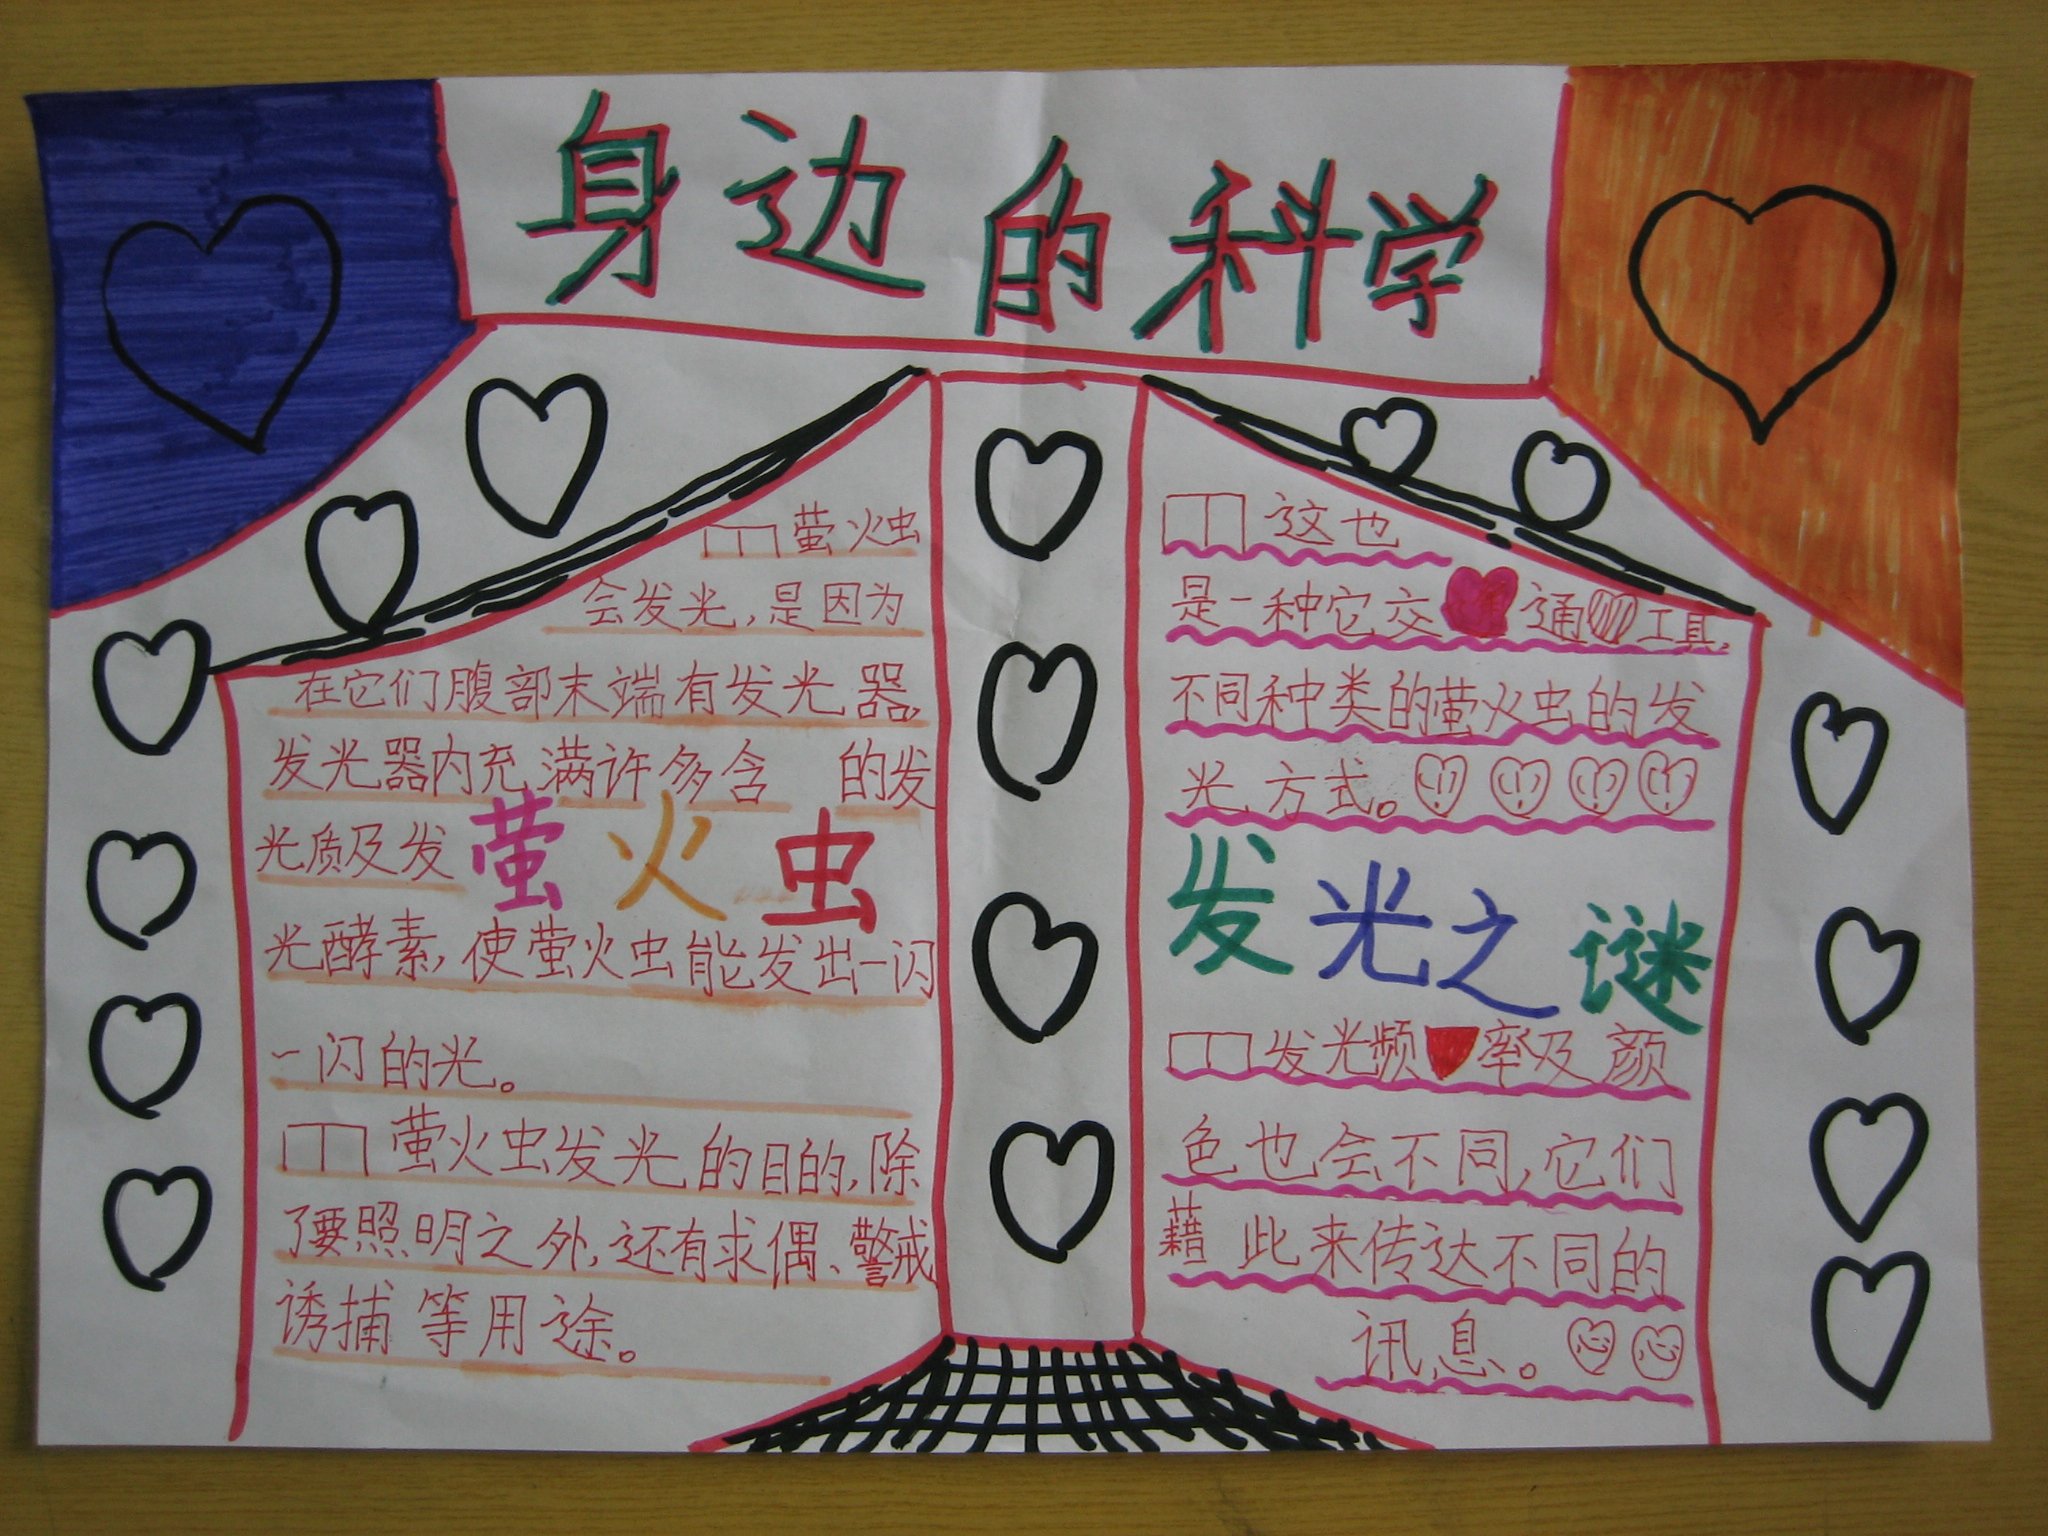 身边的科学
萤火虫
会发光,是因为
在它们腹部末端有发光器,
发光器内充满许多含 的发
光质及发
萤火虫
光酵素,使萤火虫能发出一闪
一闪的光。
萤火虫发光的目的,除
了要照明之外,还有求偶、警戒
诱捕等用途。
这也
是一种它交通工具,
不同种类的萤火虫的发
光方式。
发光之谜
发光频率及颜
色也会不同,它们
藉此来传达不同的
讯息。